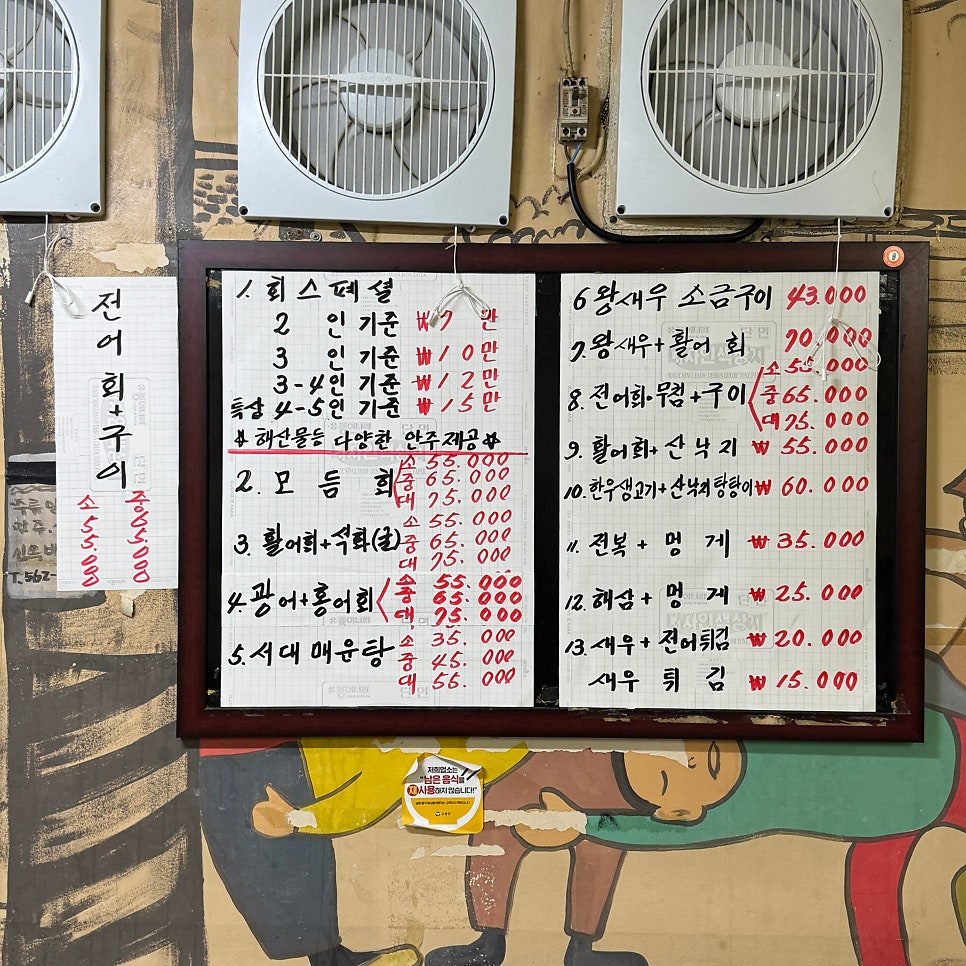 전어회+구이
소 55.000
중 65.000
1. 회 스페셜
2 인 기준 ₩7 만
3 인 기준 ₩10만
3-4인 기준 ₩12만
특상 4-5인 기준 ₩15만
해산물등 다양한 안주제공
2. 모듬 회
소 55.000
중 65.000
대 75.000
3. 활어회+석화(굴)
소 55.000
중 65.000
대 75.000
4. 광어+홍어회
소 55.000
중 65.000
대 75.000
5. 서대 매운탕
소 35.000
중 45.000
대 55.000
6 왕새우 소금구이 43.000
7. 왕새우+활어 회 70.000
8. 전어회·무침+구이
소 55.000
중 65.000
대 75.000
9. 활어회+산낙지 ₩ 55.000
10. 한우생고기+산낙지탕탕이 ₩ 60.000
11. 전복 + 멍 게 ₩ 35.000
12. 해삼 + 멍 게 ₩ 25.000
13. 새우 + 전어튀김 ₩ 20.000
새우 튀 김 ₩ 15.000
저희업소는
"남은 음식을
재사용하지 않습니다!"
T.562-